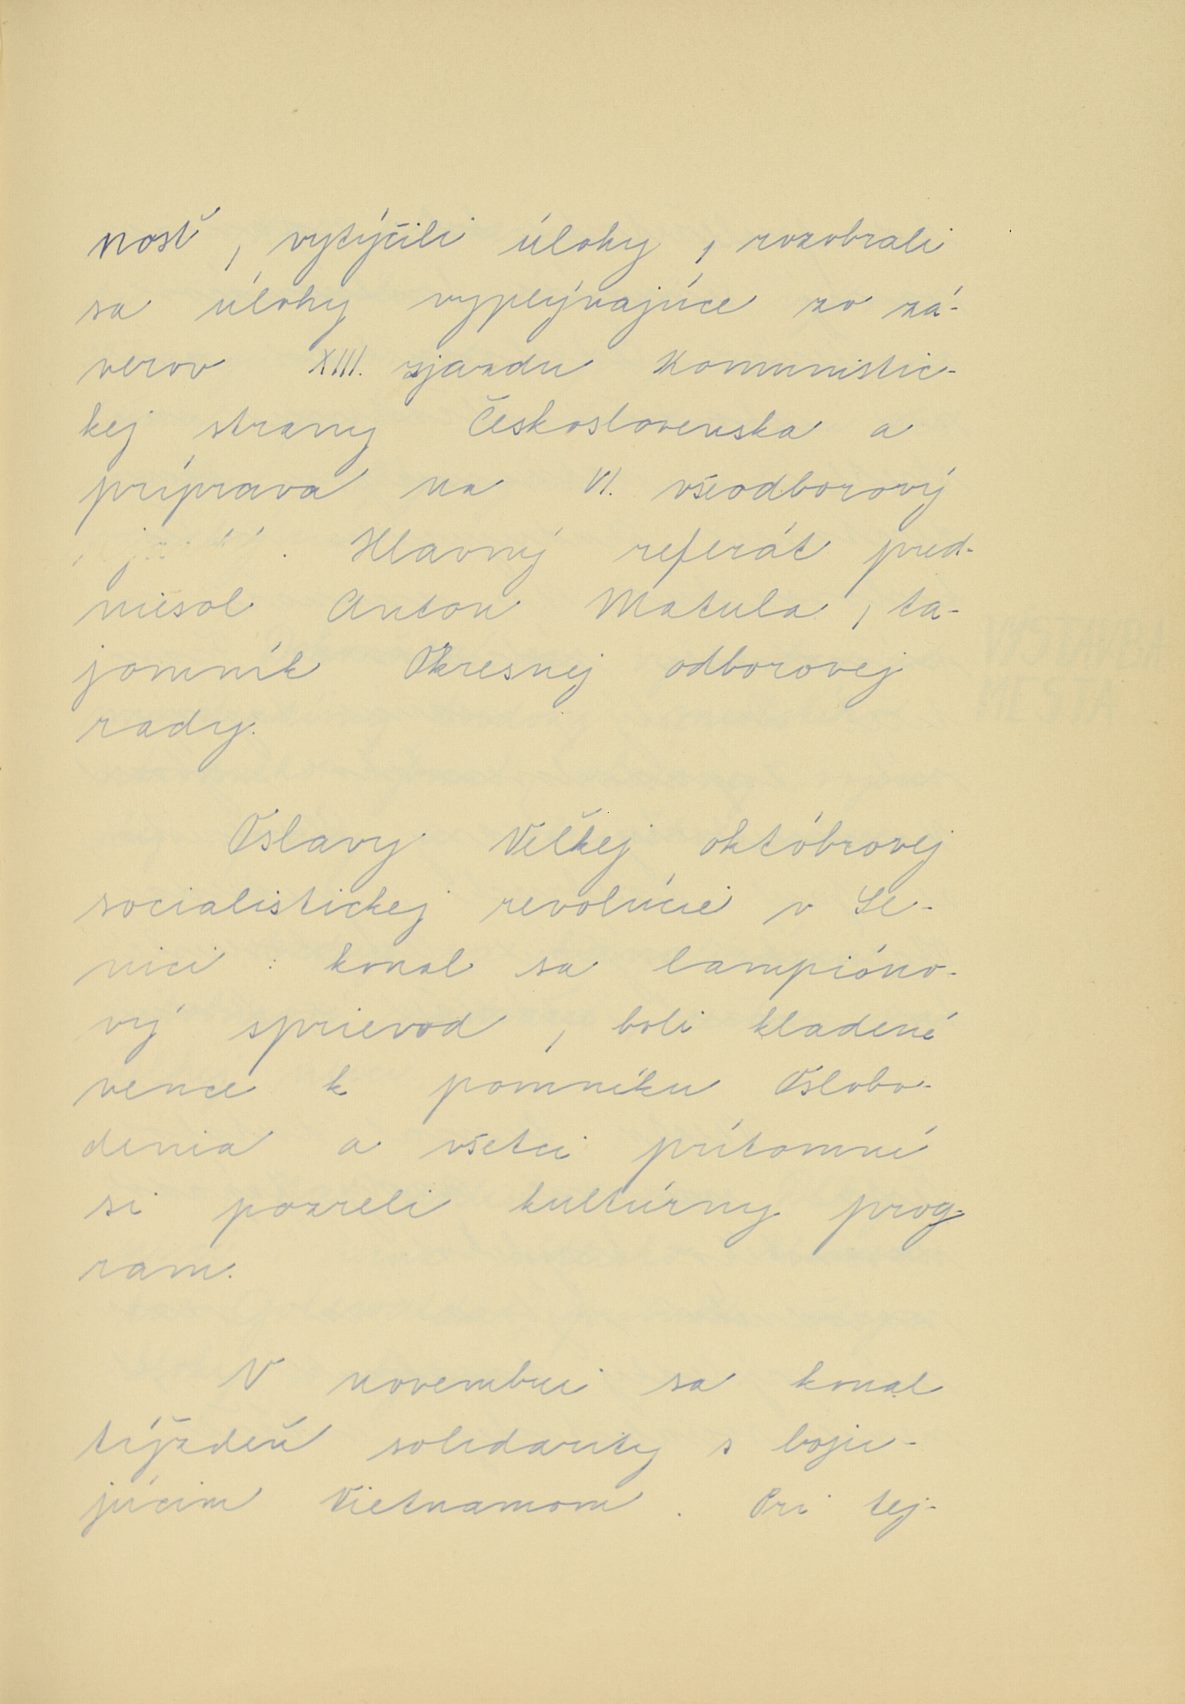 nosť, vytýčili úlohy, rozobrali
sa úlohy vyplývajúce zo zá-
verov XIII. zjazdu Komunistic-
kej strany Československa a
príprava na VI. všeodborový
. Hlavný referát pred-
niesol Anton Matula, ta-
jomník Okresnej odborovej
rady.
Oslavy Veľkej októbrovej
socialistickej revolúcie v Se-
nici : konal sa lampióno-
vý sprievod, boli kladené
vence k pomníku Oslobo-
denia a všetci prítomní
si pozreli kultúrny prog-
ram.
V novembri sa konal
týždeň solidarity s boju-
júcim Vietnamom. Pri tej-